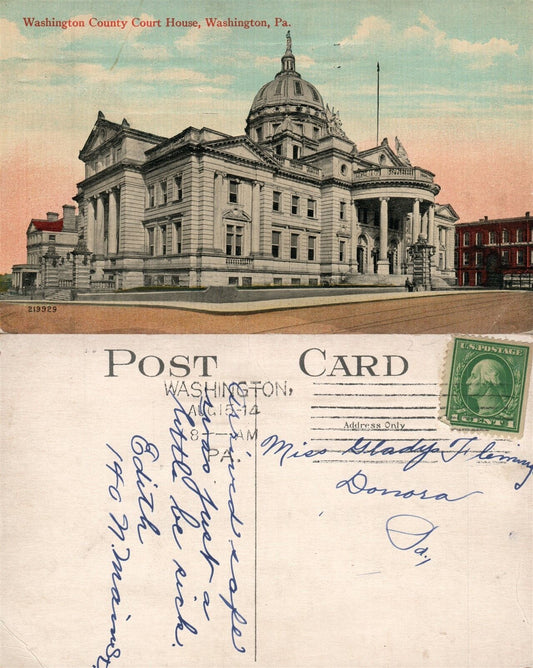 Washington County Court House, Washington, Pa.
219929
POST CARD
WASHINGTON,
AUG 15 14
8 - AM
PA.
Address Only
U.S. POSTAGE
1 CENT 1
Miss Gladys Fleming
Donora
Pa,
arrived safe
was just a
little be sick.
Edith
140 N. Main St.